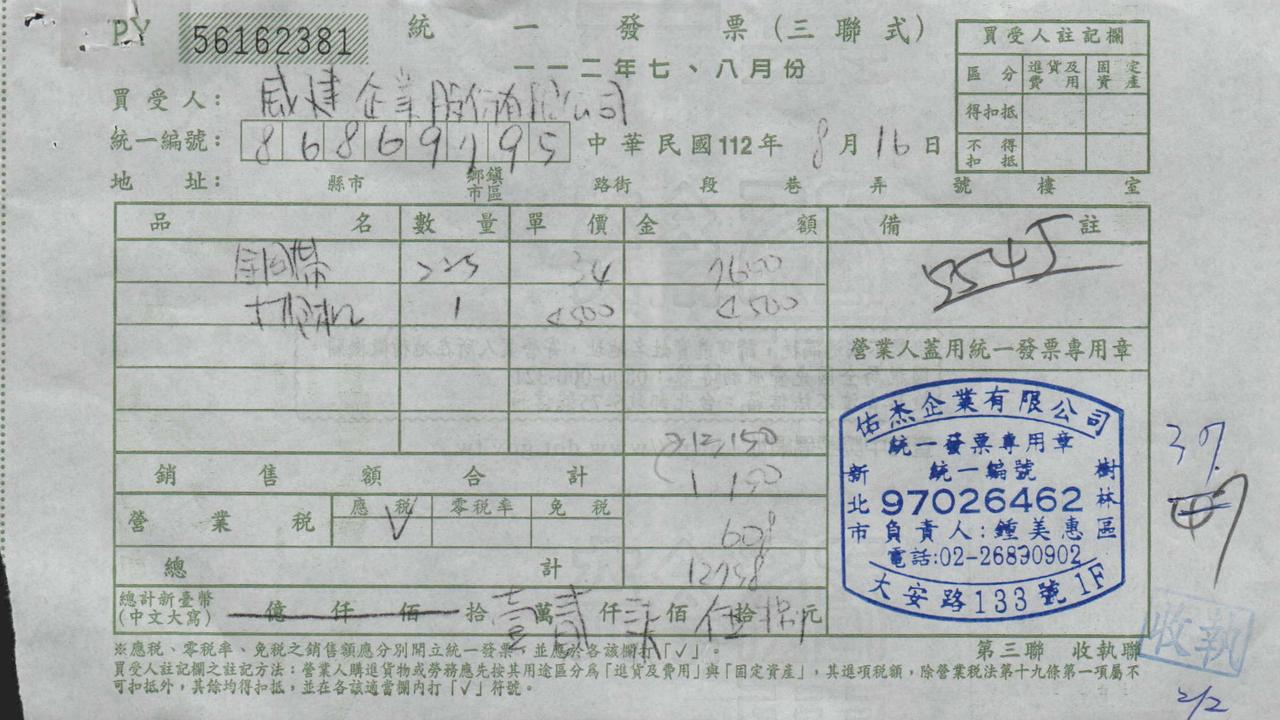 PY 56162381 統一發票(三聯式)
一一二年七、八月份
買受人註記欄
區分 進貨及費用 固定資產
得扣抵
不得扣抵
買受人: 威建企業股份有限公司
統一編號: 86869795 中華民國112年8月16日
地址: 縣市 鄉鎮市區 路街 段 巷 弄 號 樓 室
品名 數量 單價 金額 備註
225 34 7650 5545
1 4500 4500
營業人蓋用統一發票專用章
12,150
銷售額合計
營業稅 應稅 V 零稅率 免稅 608
總計 12758
總計新臺幣(中文大寫) 億 仟 佰 拾 壹萬 貳仟 柒佰 伍拾 捌元
佑杰企業有限公司
統一發票專用章
統一編號
97026462
新北市 樹林區
負責人:鍾美惠
電話:02-26890902
大安路133號1F
※應稅、零稅率、免稅之銷售額應分別開立統一發票,並應於各該欄打「✓」。
第三聯 收執聯
買受人註記欄之註記方法:營業人購進貨物或勞務應先按其用途區分為「進貨及費用」與「固定資產」,其進項稅額,除營業稅法第十九條第一項屬不
可扣抵外,其餘均得扣抵,並在各該適當欄內打「✓」符號。
收執
2/2